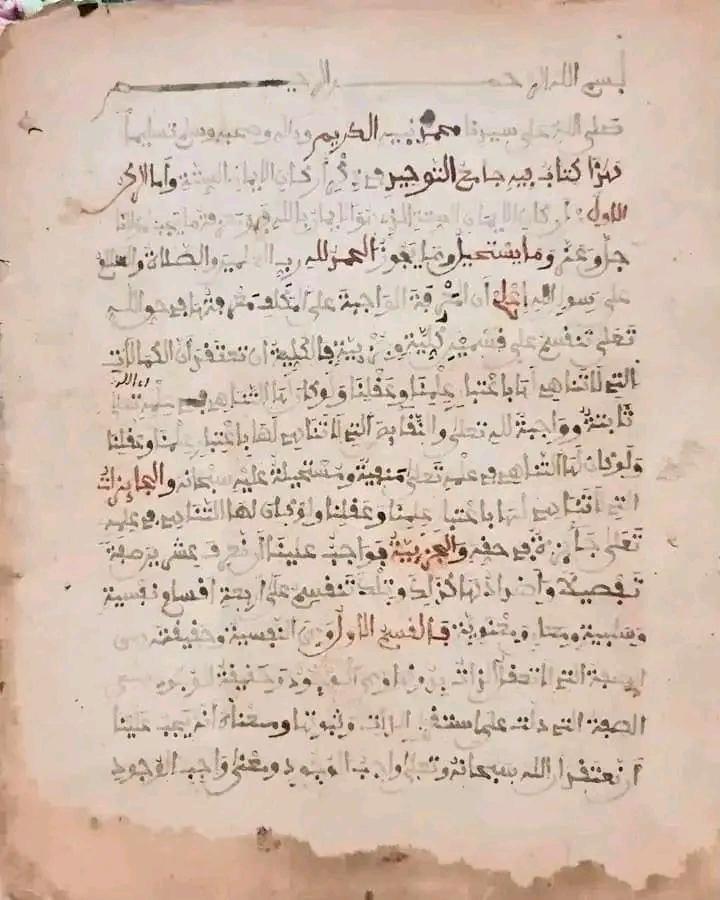 بسم الله الرحمن الرحيم
صلى الله على سيدنا محمد نبيه الكريم وءاله وصحبه وسلم تسليما
فهذا كتاب فيه جامع التوحيد في ذكر أركان الإيمان الستة وأما الركن
الأول من أركان الإيمان الستة الذي هو الإيمان بالله فهو معرفة ما يجب لمولانا
جل وعز وما يستحيل وما يجوز الحمد لله رب العلمين والصلاة والسلام
على رسول الله إعلم أن المعرفة الواجبة على المكلف معرفتها في حق الله
تعلى تنقسم على قسمين كلية وجزئية فالكلية أن تعتقد أن الكمالات
التي لا تتناهى لها باعتبار علمنا وعقلنا ولو كان لها التناهي في علم الله تعلى
ثابتة وواجبة لله تعلى والنقايص التي لا تتناهى لها باعتبار علمنا وعقلنا
ولو كان لها التناهي في علمه تعلى منفية ومستحيلة عليه سبحانه والجايزات
التي لا تتناهى لها باعتبار علمنا وعقلنا ولو كان لها التناهي في علمه
تعلى جايزة في حقه والجزيية فواجب علينا أن نعرف عشرين صفة
تفصيلا وأضدادها كذلك وتلك تنقسم على أربعة أقسام نفسية
وسلبية ومعان ومعنوية فالقسم الأول وهي النفسية وحقيقته هي
الصفة التي الوجود وحقيقة الوجود هي
الصفة التي دلت على الذات وثبوتها ومعناه أنه يجب علينا
أن نعتقد أن الله سبحانه وتعلى واجب الوجود ومعنى واجب الوجود